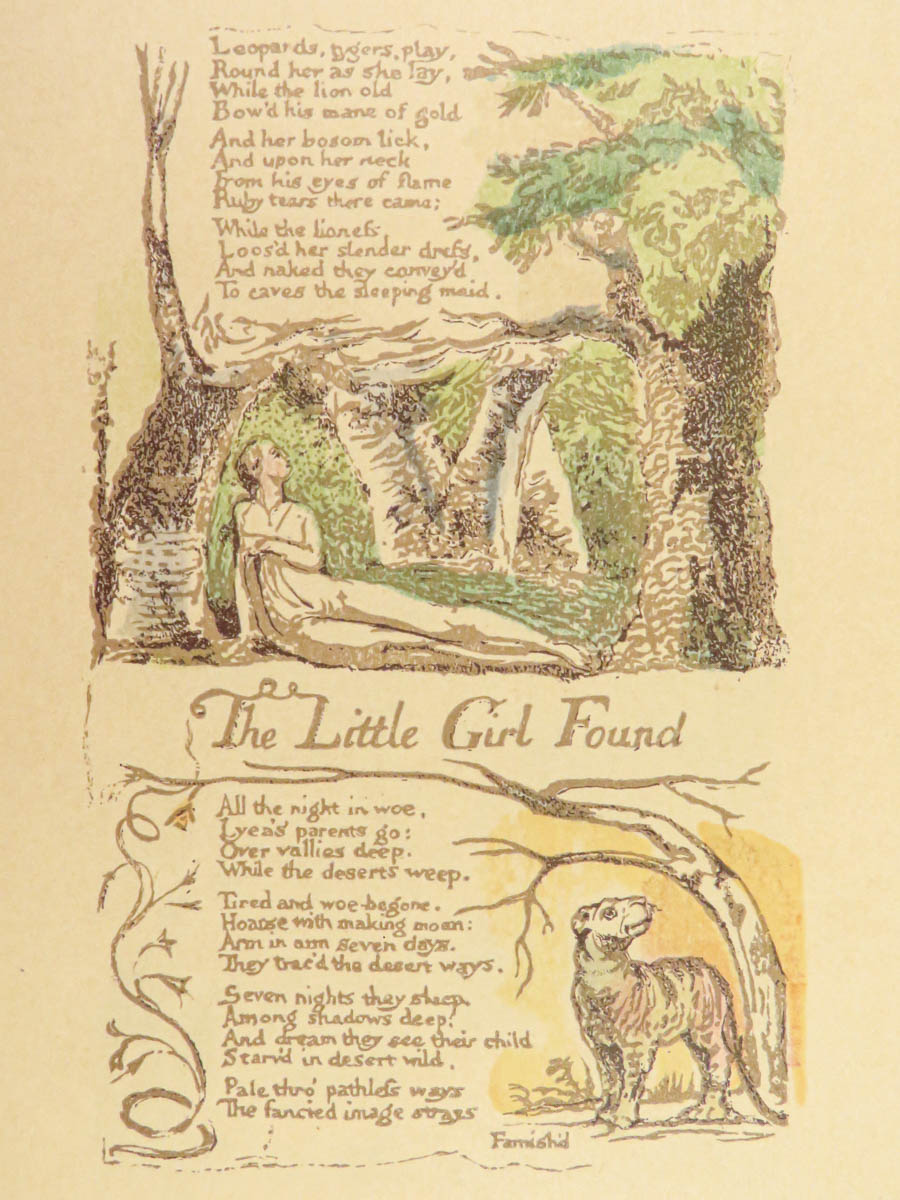 Leopards, tygers, play,
Round her as she lay,
While the lion old
Bow'd his mane of gold
And her bosom lick,
And upon her neck
From his eyes of flame
Ruby tears there came;
While the lioneſs,
Loos'd her slender dreſs,
And naked they convey'd
To caves the sleeping maid.
The Little Girl Found
All the night in woe,
Lyca's parents go:
Over vallies deep.
While the deserts weep.
Tired and woe-begone.
Hoarse with making moan:
Arm in arm seven days.
They trac'd the desert ways.
Seven nights they sleep,
Among shadows deep:
And dream they see their child
Starv'd in desert wild.
Pale thro' pathleſs ways
The fancied image strays
Famish'd